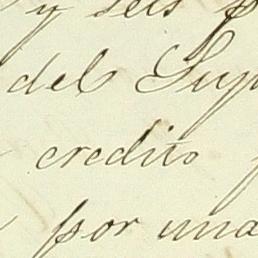 y seis p
del Sup
credito
por una